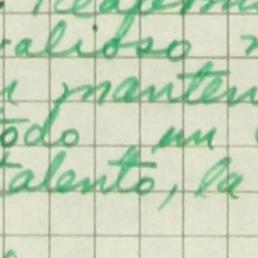 valioso
manten
todo un
talento, la